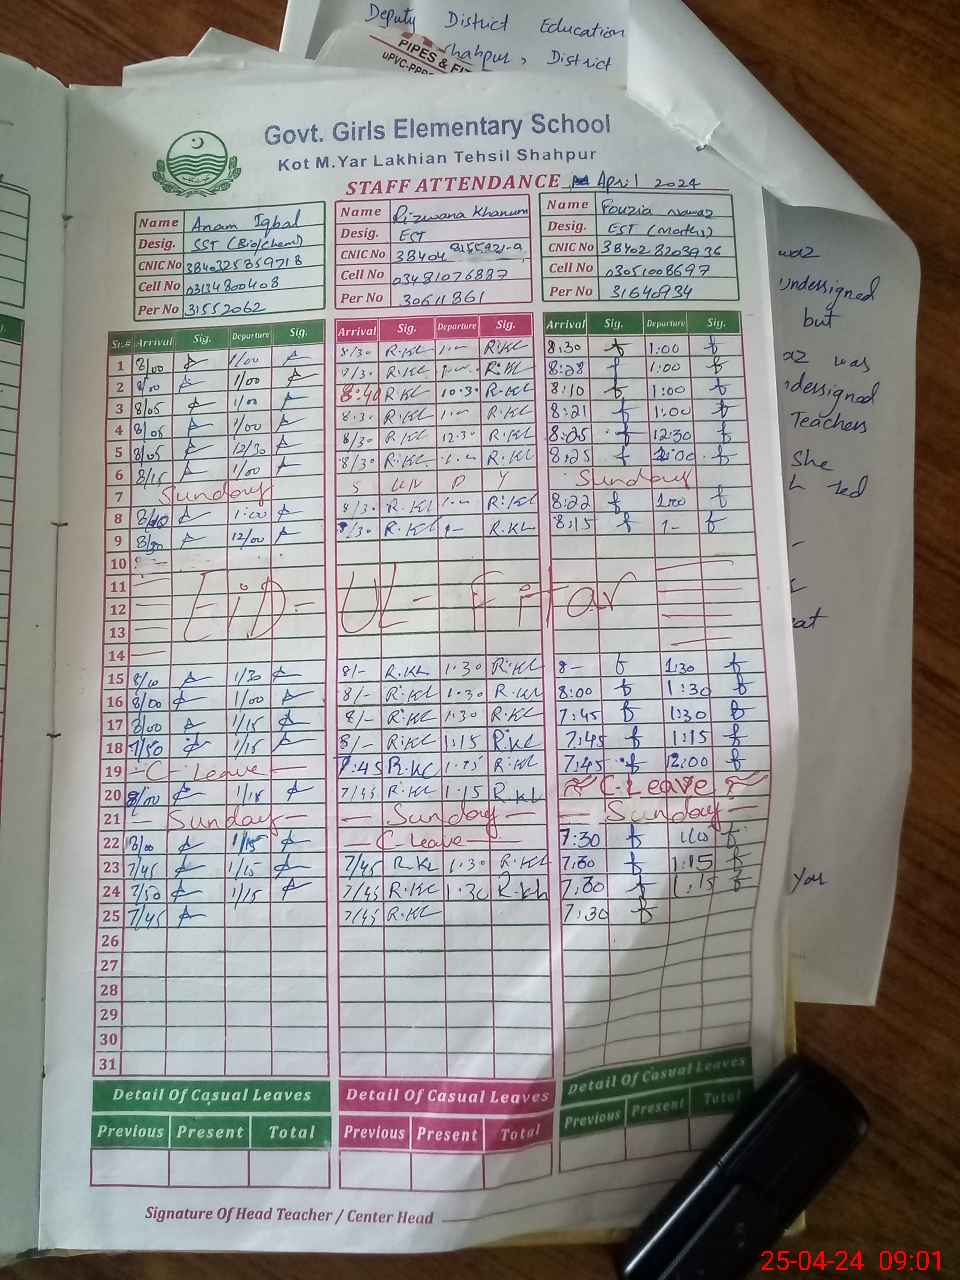 Deputy District Education
PIPES & FI
uPVC-PPR
Shahpur, District
Govt. Girls Elementary School
Kot M.Yar Lakhian Tehsil Shahpur
STAFF ATTENDANCE April 2024
Name Anam Iqbal Name Rizwana Khanum Name Fouzia nawaz
Desig. SST (Bio/chem) Desig. EST Desig. EST (Maths)
CNIC No 3840325859718 CNIC No 38404 CNIC No 384028208936
Cell No 03134800408 Cell No 03481076887 Cell No 03051008697
Per No 31552062 Per No 30611861 Per No 31640934
Sr.# Arrival Sig. Departure Sig. Arrival Sig. Departure Sig. Arrival Sig. Departure Sig.
1 8/00 1/00 8/30 R.KL 1.- R.KL 8:30 1:00
2 8/00 1/00 8/30 R.KL R.KL 8:28 1:00
3 8/05 1/00 8:40 R.KL 10.30 R.KL 8:10 1:00
4 8/05 1/00 8.30 R.KL 1.- R.KL 8:21 1:00
5 8/05 12/30 8/30 R.KL 12.30 R.KL 8:25 12:30
6 8/15 1/00 8/30 R.KL 1.- R.KL 8:25
7 Sunday S U N D Y Sunday
8 1:00 8/30 R.KL 1.- R.KL 8:22 1:00
9 12/00 8/30 R.KL R.KL 8:15 1-
10
11
12 EiD- UL- Fitar
13
14
15 8/10 1/30 8/- R.KL 1.30 R.KL 8- 1:30
16 8/00 1/00 8/- R.KL 1.30 R.KL 8:00 1:30
17 8/00 1/15 8/- R.KL 1:30 R.KL 7:45 1:30
18 7/50 1/15 8/- R.KL 1:15 R.KL 7:45 1:15
19 C- Leave 7:45 R.KL 1.15 R.KL 7:45 12:00
20 8/00 1/15 7/45 R.KL 1.15 R.KL C.Leave
21 Sunday Sunday Sunday
22 8/00 1/15 C leave 7:30
23 7/45 1/15 7/45 R.KL 1.30 R.KL 7:30 1:15
24 7/50 1/15 7/45 R.KL 1:30 R.KL 7:30 1:15
25 7/45 7/45 R.KL 7:30
26
27
28
29
30
31
Detail Of Casual Leaves Detail Of Casual Leaves Detail Of Casual Leaves
Previous Present Total Previous Present Total Previous Present Total
Signature Of Head Teacher / Center Head
undersigned
but
was
Teachers
She
You
25-04-24 09:01